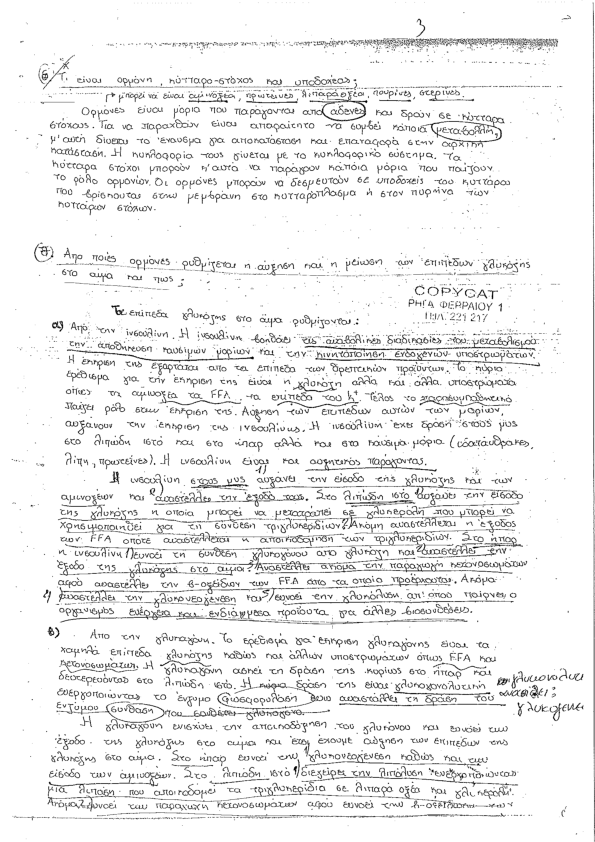 3
⑥ Τι είναι ορμόνη, κύτταρο-στόχος και υποδοχέας;
* μπορεί να είναι αμινοξέα, πρωτεΐνες, λιπαρά οξέα, πουρίνες, στερίνες.
Ορμόνες είναι μόρια που παράγονται από αδένες και δρουν σε κύτταρα
στόχους. Για να παραχθούν είναι απαραίτητο να συμβεί κάποια μεταβολή,
μ'αυτή δίνεται το έναυσμα για αποκατάσταση και επαναφορά στην αρχική
κατάσταση. Η κυκλοφορία τους γίνεται με το κυκλοφορικό σύστημα. Τα
κύτταρα στόχοι μπορούν κ'αυτά να παράγουν κάποια μόρια που παίζουν
το ρόλο ορμονών. Οι ορμόνες μπορούν να δεσμευτούν σε υποδοχείς του κυττάρου
που βρίσκονται στην μεμβράνη στο κυτταρόπλασμα ή στον πυρήνα των
κυττάρων στόχων.
⑦. Από ποιές ορμόνες ρυθμίζεται η αύξηση και η μείωση των επιπέδων γλυκόζης
στο αίμα και πως;
COPYCAT
ΡΗΓΑ ΦΕΡΡΑΙΟΥ 1
ΤΗΛ. 221 217
Τα επίπεδα γλυκόζης στο αίμα ρυθμίζονται:
α) Από την ινσουλίνη. Η ινσουλίνη βοηθάει τις αναβολικές διαδικασίες του μεταβολισμού
την αποθήκευση καυσίμων μορίων και την κινητοποίηση ενδογενών υποστρωμάτων.
Η έκκριση της εξαρτάται από τα επίπεδα των θρεπτικών προϊόντων. Το κύριο
ερέθισμα για την έκκριση της είναι η γλυκόζη αλλά και άλλα υποστρώματα
όπως τα αμινοξέα τα FFA, τα επίπεδα του K⁺. Τέλος το παρασυμπαθητικό
παίζει ρόλο στην έκκριση της. Αύξηση των επιπέδων αυτών των μορίων,
αυξάνουν την έκκριση της ινσουλίνης. Η ινσουλίνη έχει δράση στους μυς
στο λιπώδη ιστό και στο ήπαρ αλλά και στα καύσιμα μόρια (υδατάνθρακες,
λίπη, πρωτεΐνες). Η ινσουλίνη είναι και αυξητικός παράγοντας.
Η ινσουλίνη στους μυς αυξάνει την είσοδο της γλυκόζης και των
αμινοξέων και αναστέλλει την έξοδό τους. Στο λιπώδη ιστό αυξάνει την είσοδο
της γλυκόζης η οποία μπορεί να μετατραπεί σε γλυκερόλη που μπορεί να
χρησιμοποιηθεί για τη σύνθεση τριγλυκεριδίων. Ακόμη αναστέλλεται η έξοδος
των FFA οπότε αναστέλλεται η αποικοδόμηση των τριγλυκεριδίων. Στο ήπαρ
η ινσουλίνη ευνοεί τη σύνθεση γλυκογόνου από γλυκόζη και αναστέλλει την
έξοδο της γλυκόζης στο αίμα. Αναστέλλει ακόμα την παραγωγή κετονοσωμάτων
αφού αναστέλλει την β-οξείδωση των FFA από τα οποία προέρχονται. Ακόμα
αναστέλλει την γλυκονεογένεση και ευνοεί την γλυκόλυση, απ'όπου παίρνει ο
οργανισμός ενέργεια και ενδιάμεσα προϊόντα για άλλες βιοσυνθέσεις.
β) Από την γλυκαγόνη. Το ερέθισμα για έκκριση γλυκαγόνης είναι τα
χαμηλά επίπεδα γλυκόζης καθώς και άλλων υποστρωμάτων όπως FFA και
κετονοσωμάτων. Η γλυκαγόνη ασκεί τη δράση της κυρίως στο ήπαρ και
δευτερευόντως στο λιπώδη ιστό. Η κύρια δράση της είναι γλυκογονολυτική
ενεργοποιώντας το ένζυμο φωσφορυλάση ενώ αναστέλλει τη δράση του
ενζύμου συνθάση που συνθέτει γλυκογόνο.
Η γλυκαγόνη ενισχύει την αποικοδόμηση του γλυκογόνου και ευνοεί την
έξοδο της γλυκόζης στο αίμα και έτσι έχουμε αύξηση των επιπέδων της
γλυκόζης στο αίμα. Στο ήπαρ ευνοεί την γλυκονεογένεση καθώς και την
είσοδο των αμινοξέων. Στο λιπώδη ιστό διεγείρει την λιπόλυση ενεργοποιώντας
μια λιπάση που αποικοδομεί τα τριγλυκερίδια σε λιπαρά οξέα και γλυκερόλη.
Ακόμα ευνοεί την παραγωγή κετονοσωμάτων αφού ευνοεί την β-οξείδωση των